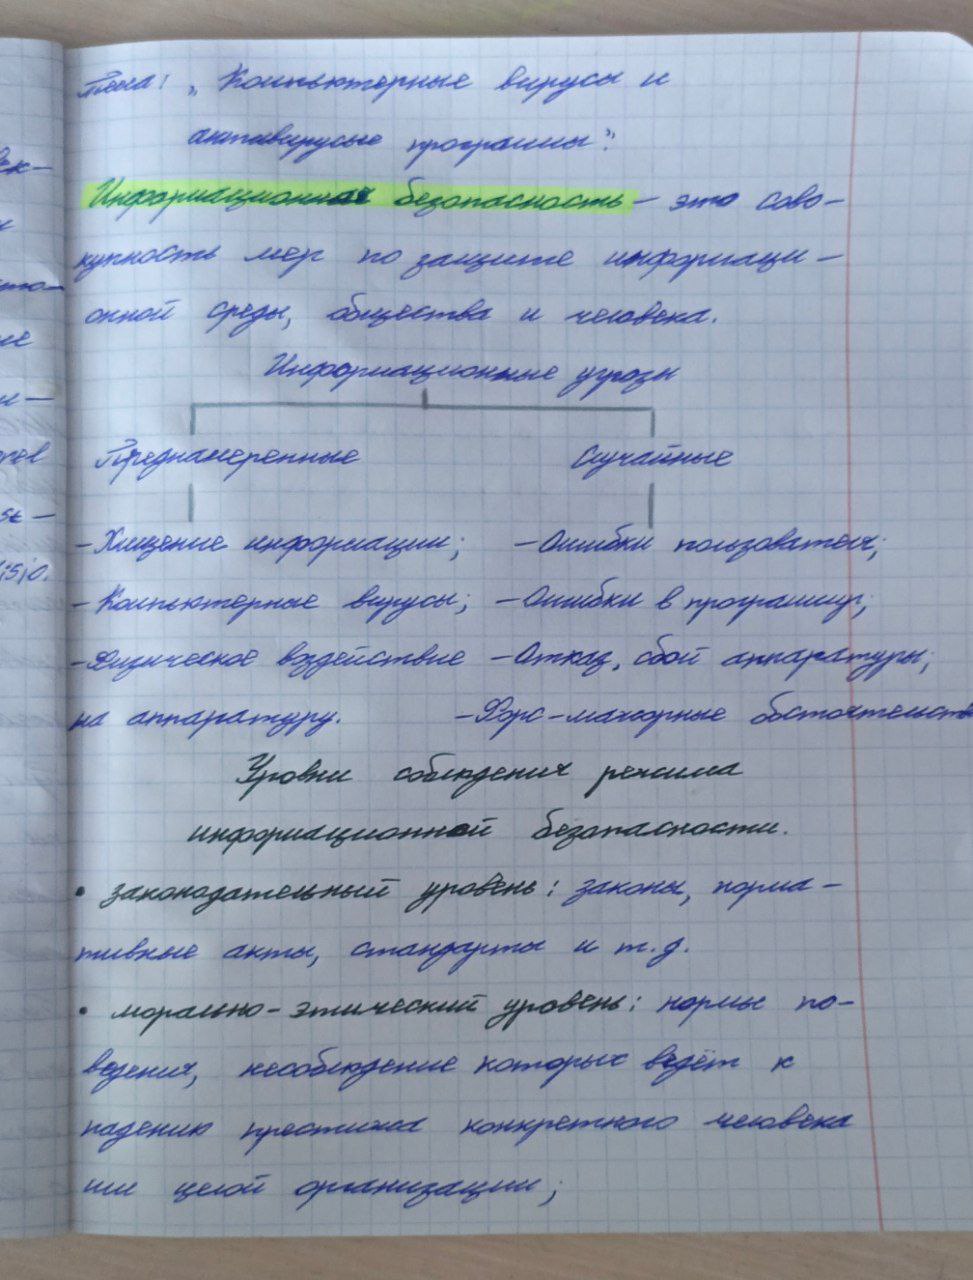 Тема: „Компьютерные вирусы и
антивирусые программы".
Информационная безопасность – это сово-
купность мер по защите информаци-
онной среды, общества и человека.
Информационные угрозы
Преднамеренные Случайные
- Хищение информации; - Ошибки пользователя;
- Компьютерные вирусы; - Ошибки в программир;
- Физическое воздействие - Отказ, сбой аппаратуры;
на аппаратуру. - Форс-мажорные обстоятельств
Уровни соблюдения режима
информационной безопасности.
• законодательный уровень: законы, норма-
тивные акты, стандарты и т.д.
• морально-этический уровень: нормы по-
ведения, несоблюдение которых ведёт к
падению престижа конкретного человека
или целой организации;